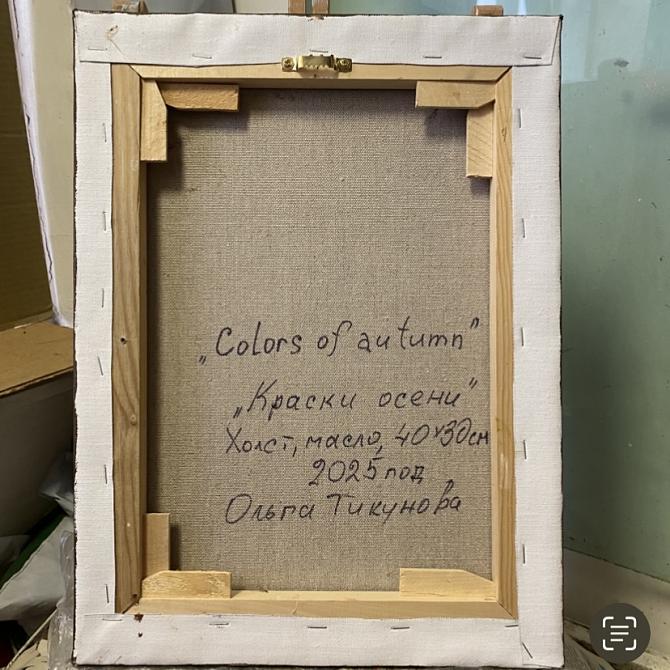 „Colors of autumn"
„Краски осени"
Холст, масло, 40х30см
2025 год
Ольга Тикунова